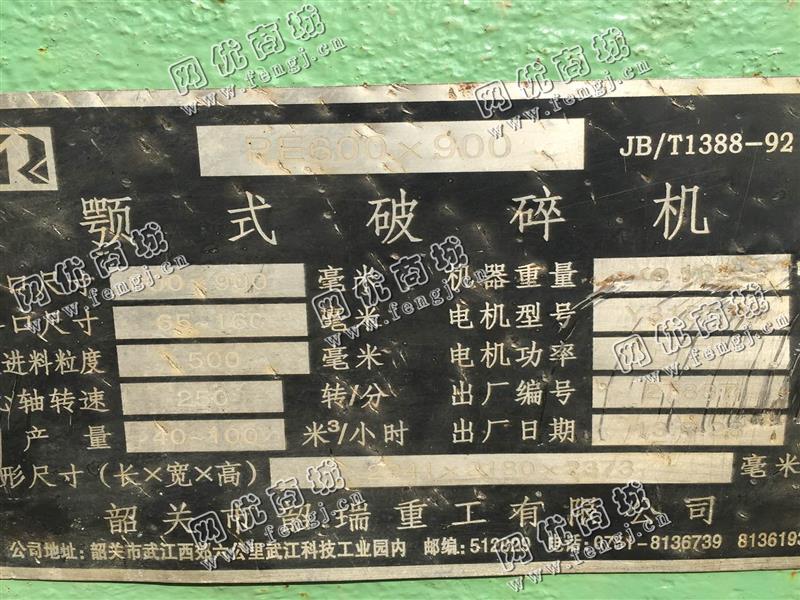 PE600×900 JB/T1388-92
颚式破碎机
口尺寸 900 毫米 机器重量
口尺寸 65-160 毫米 电机型号
进料粒度 500 毫米 电机功率
心轴转速 250 转/分 出厂编号
产量 40-100 米³/小时 出厂日期
形尺寸(长×宽×高) ×2180×2373 毫米
韶关市 瑞重工有限公司
公司地址: 韶关市武江西郊六公里武江科技工业园内 邮编: 电话: 8136739 813619
网优商城
www.fengj.cn
网优商城
www.fengj.cn
网优商城
www.fengj.cn
网优商城
www.fengj.cn
网优商城
www.fengj.cn
网优商城
www.fengj.cn
网优商城
www.fengj.cn
网优商城
www.fengj.cn
网优商城
www.fengj.cn